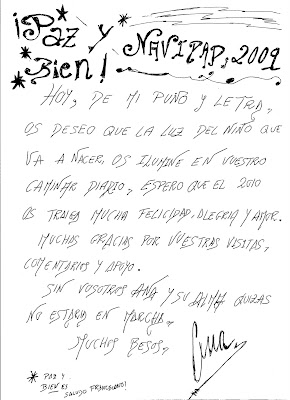 ¡Paz y
Bien! NAVIDAD, 2009
HOY, DE MI PUÑO Y LETRA,
OS DESEO QUE LA LUZ DEL NIÑO QUE
VA A NACER, OS ILUMINE EN VUESTRO
CAMINAR DIARIO, ESPERO QUE EL 2010
OS TRAIGA MUCHA FELICIDAD, ALEGRIA Y AMOR.
MUCHAS GRACIAS POR VUESTRAS VISITAS,
COMENTARIOS Y APOYO.
SIN VOSOTROS ANA Y SU ALMA QUIZAS
NO ESTARIA EN MARCHA,
MUCHOS BESOS,
Ana
* PAZ Y
BIEN ES
SALUDO FRANCISCANO!